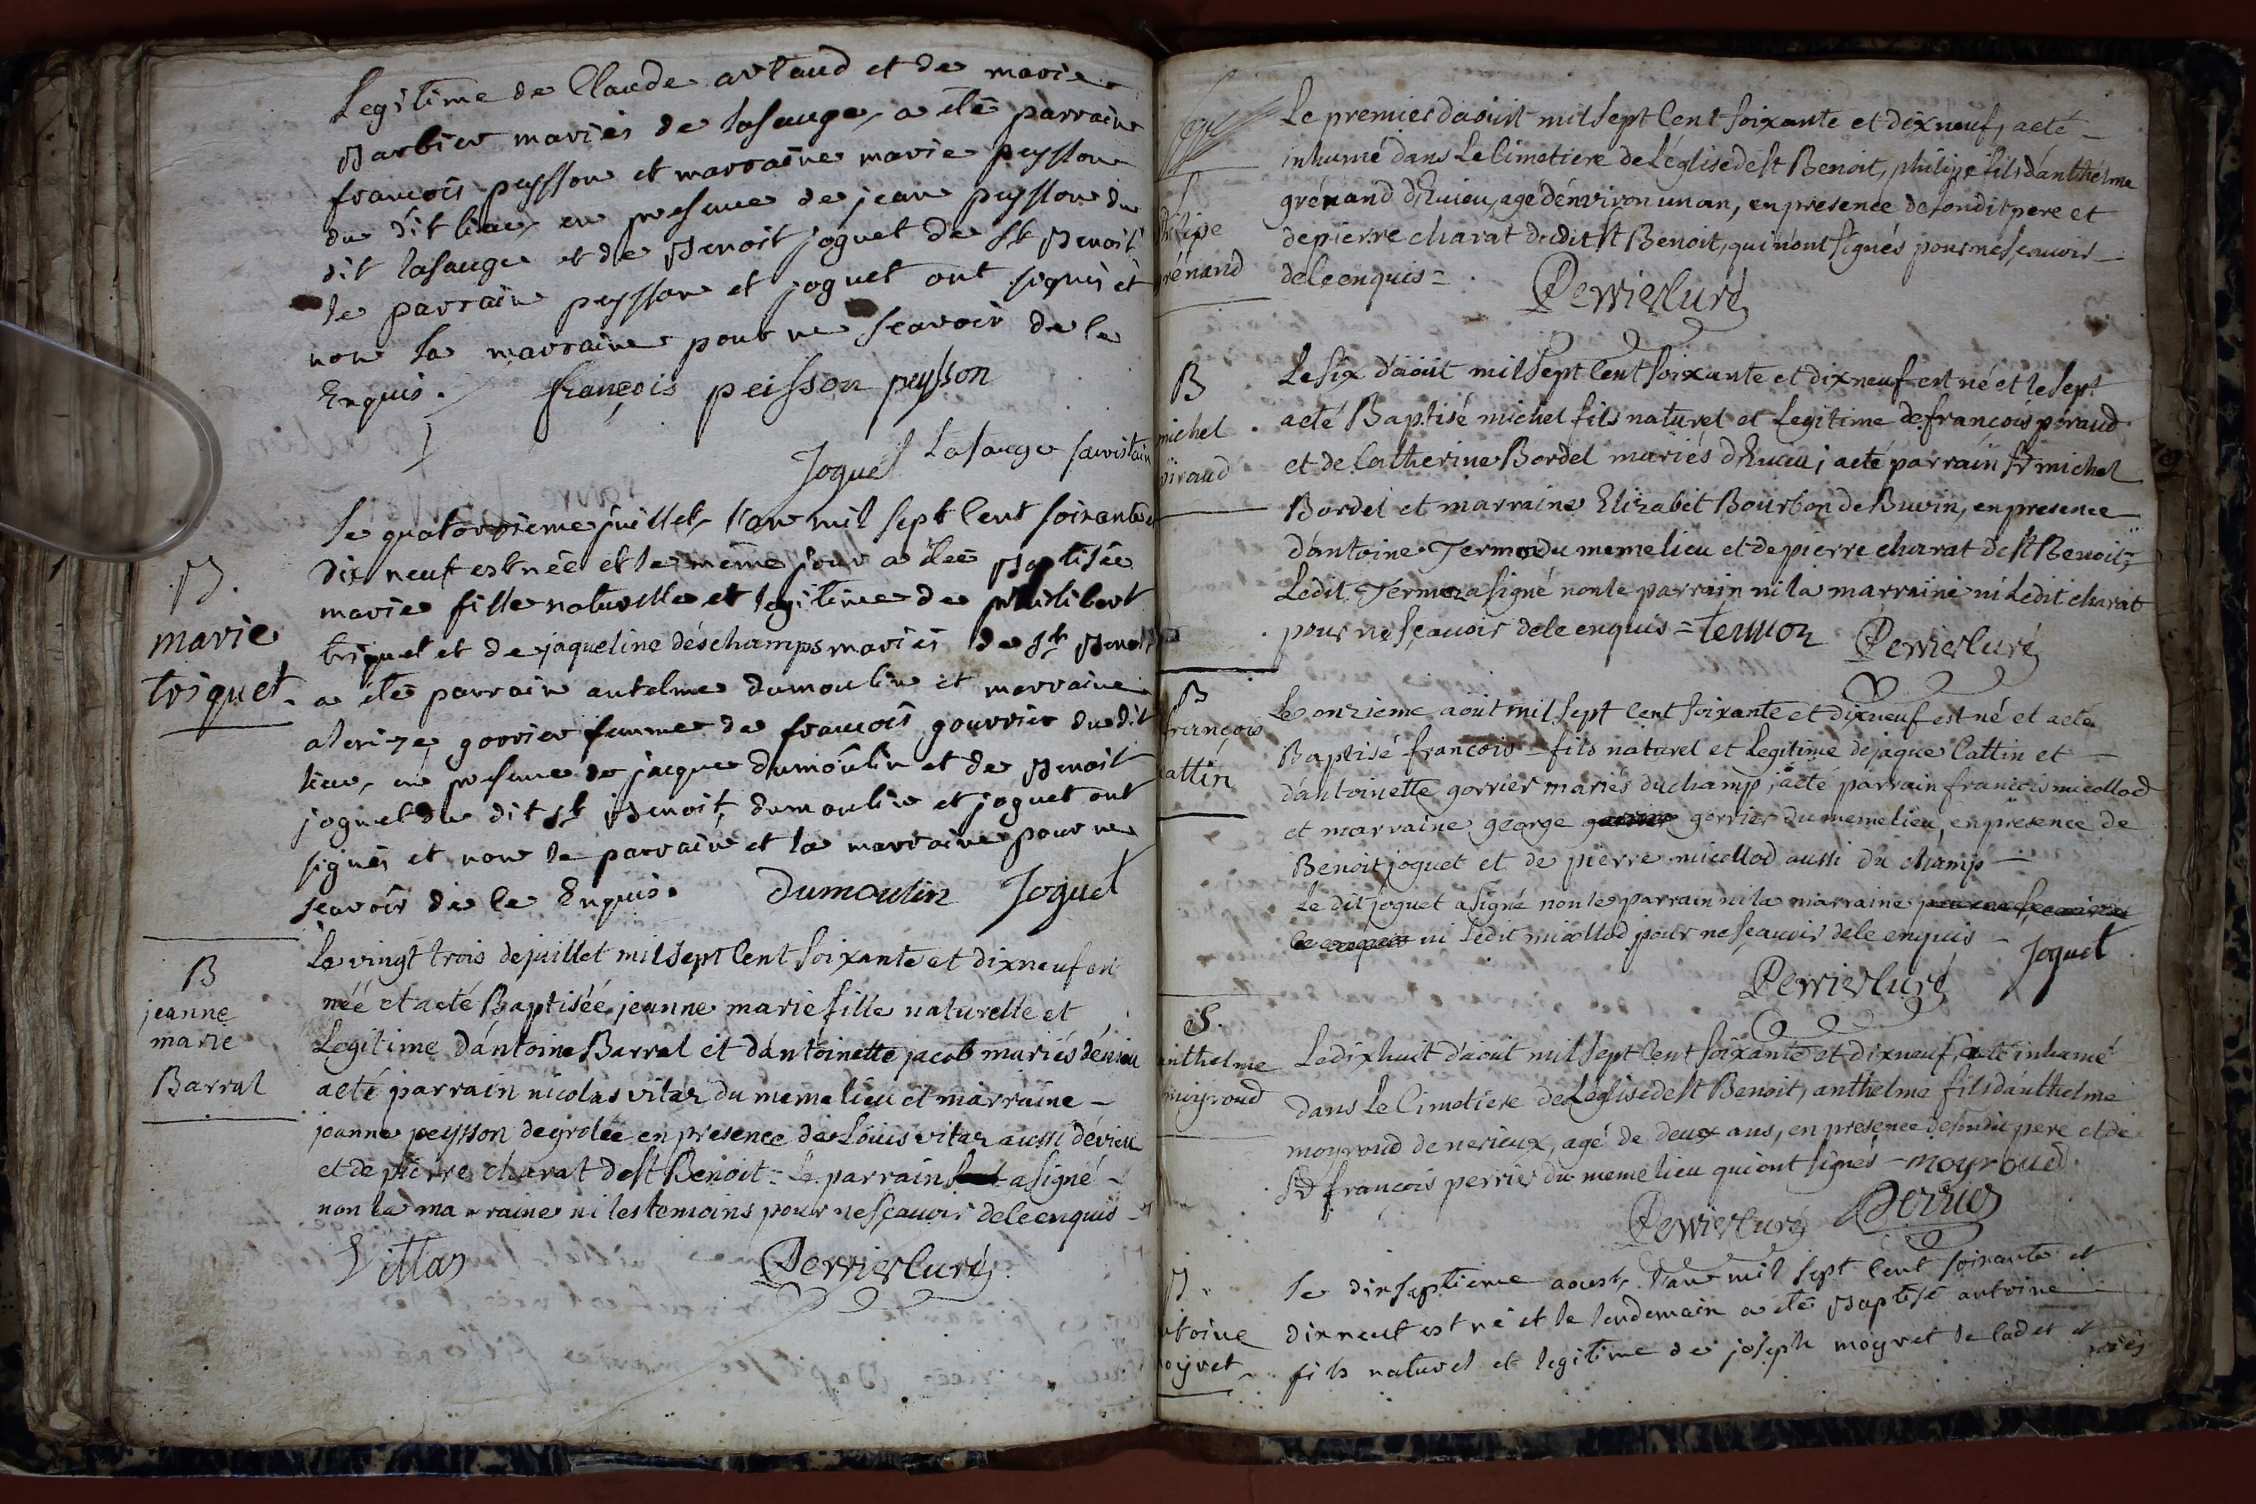 Legitime de Claude artaud et de marie
Barbier mariés de lasauge, a eté parrain
francois peysson et marraine marie peysson
du dit lieu, en presence de jean peysson du
dit lasauge et de Benoit joguet de St Benoit
le parrain peysson et joguet ont signés et
non la marraine pour ne scavoir de ce
Enquis. françois peisson peysson
Joguet Lasauge
B.
marie
triquet
Le quatorzieme juillet, l'an mil sept cent soixante et
dix neuf est née et le même jour a été Baptisée
marie fille naturelle et legitime de philibert
triquet et de jaqueline déschamps mariés de St Benoit
a été parrain antelme dumoulin et marraine
gorrier femme de francois gourrier du dit
lieu, en presence de jacque dumoulin et de Benoit
joguet du dit St Benoit, dumoulin et joguet ont
signés et non le parrain et la marraine pour ne
scavoir de ce Enquis. Dumoulin Joguet
B
jeanne
marie
Barral
Le vingt trois de juillet mil sept Cent soixante et dixneuf est
néé et acté Baptiséé jeanne marie fille naturelle et
Legitime d'antoine Barral et d'antoinette jacob mariés dévieu
acté parrain nicolas vitar du meme lieu et marraine
jeanne peysson de grolée en presence de Louis vitar aussi dévieu
et de pierre charat de St Benoit = Le parrain a signé
non la marraine ni les temoins pour ne sçavoir de ce enquis
Vittaz Perrier Curé
philipe
grénand
Le premier d'aoust mil sept Cent soixante et dixneuf, acté
inhumé dans Le Cimetiere de L'église de St Benoit, philipe fils d'anthélme
grénand d'Evieu, agé d'énviron un an, en presence de sondit pere et
de pierre charat du dit St Benoit, qui n'ont signés pour ne sçauoir
de ce enquis =
Perrier Curé
B
michel
piraud
Le six d'aoüt mil sept Cent soixante et dixneuf est né et le sept
acté Baptisé michel fils naturel et Legitime de françois piraud
et de Catherine Bordel mariés d'Evieu; acté parrain Sr michel
Bordel et marraine Elizabet Bourbon de Buvin, en presence
d'antoine Termoz du meme lieu et de pierre charat de St Benoit;
Ledit Termoz a signé non le parrain ni la marraine ni Ledit charat
pour ne sçavoir de ce enquis = termoz Perrier Curé
B
françois
Cattin
Le onzieme aoüt mil sept Cent soixante et dixneuf est né et acté
Baptisé françois fils naturel et Legitime de jaque Cattin et
d'antoinette gorrier mariés du champ; acté parrain francois micollod
et marraine george gorrier du meme lieu, en presence de
Benoit joguet et de pierre micollod aussi du champ
Le dit joguet a signé non le parrain ni la marraine
ni Ledit micollod pour ne sçavoir de ce enquis Joguet
Perrier Curé
S.
anthelme
moyroud
Le dixhuit d'aout mil sept Cent soixante et dixneuf, a été inhumé
dans Le Cimetiere de L'église de St Benoit, anthelme fils d'anthelme
moyroud de nerieux, agé de deux ans, en presence de sondit pere et de
Sr françois perrier du meme lieu qui ont signés - moyroud
Perrier Curé Perrier
B.
antoine
moyret
Le dixseptieme aoust, l'an mil sept Cent soixante et
dixneuf est né et le lendemain a été Baptisé antoine
fils naturel et legitime de joseph moyret le cadet et